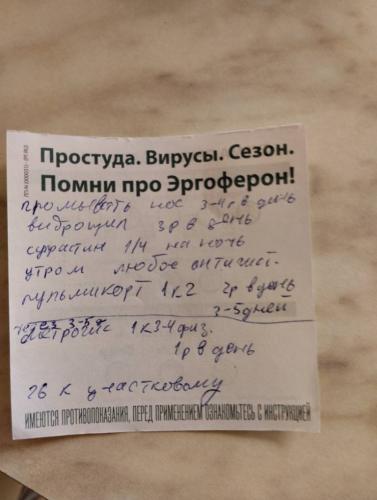 Простуда. Вирусы. Сезон.
Помни про Эргоферон!
промывать нос 3-4 р в день
виброцил 3 р в день
1/4 на ночь
утром любое антигист.
пульмикорт 1 к 2 2 р в день
3-5 дней
3-5 д
1 к 3-4 физ.
1 р в день
26 к участковому
ИМЕЮТСЯ ПРОТИВОПОКАЗАНИЯ, ПЕРЕД ПРИМЕНЕНИЕМ ОЗНАКОМЬТЕСЬ С ИНСТРУКЦИЕЙ